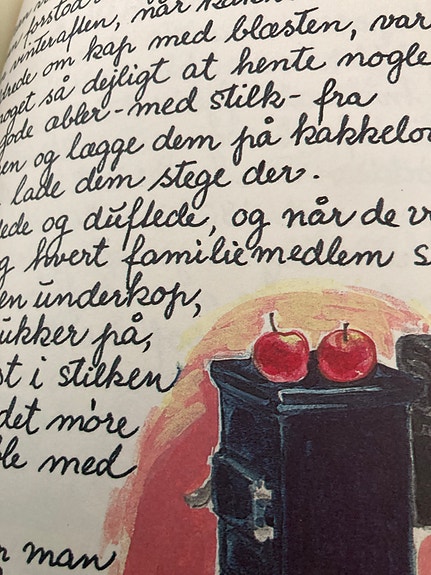 forstod
vinteraften, når kakke
rede om kap med blæsten, var
noget så dejligt at hente nogle
gode æbler - med stilk - fra
en og lægge dem på kakkelov
lade dem stege der.
ede og duftede, og når de v
g hvert familiemedlem s
en underkop,
ukker på,
st i stilken
det møre
ble med
r man